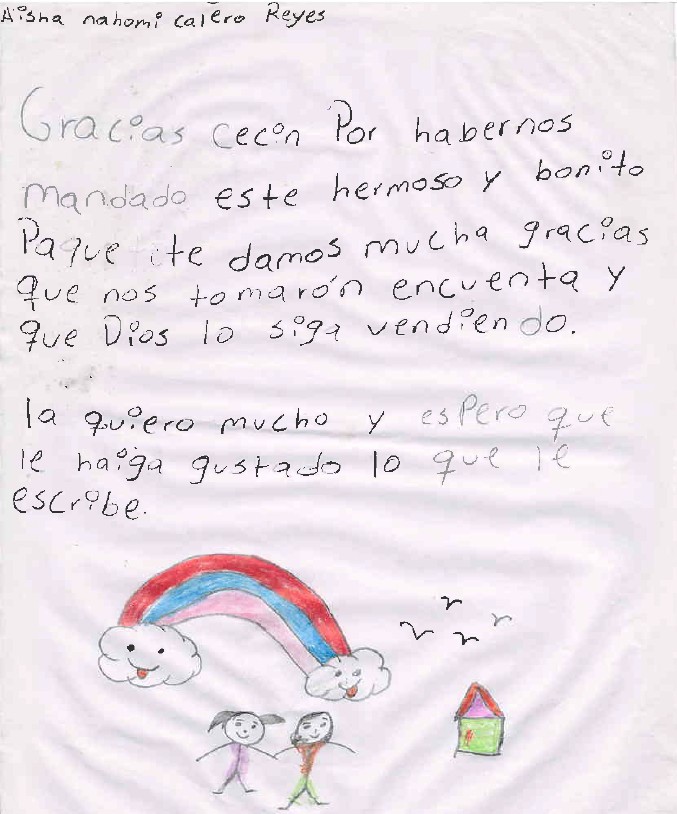 Aisha nahomi calero Reyes
Gracias cecin Por habernos
mandado este hermoso y bonito
Paque ite damos mucha gracias
que nos tomarón encuenta y
que Dios lo siga vendiendo.
la quiero mucho y espero que
le haiga gustado lo que le
escribe.